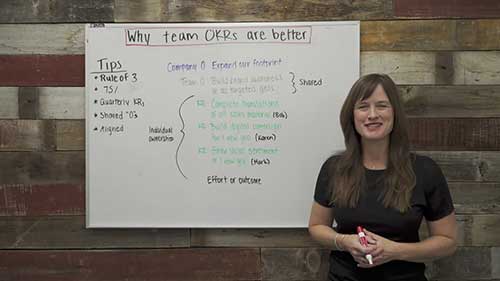 Why team OKRs are better
Tips
* Rule of 3
* 75%
* Quarterly KRs
* Shared
* Aligned
Company O: Expand our footprint
Team O: Build brand awareness
in targeted geos
Shared
Individual
ownership
KR: Complete translations
of all sales material (Bob)
KR: Build digital
for 1 new geo (Karen)
KR: Grow sales
in 1 new geo (Mark)
Effort or outcome